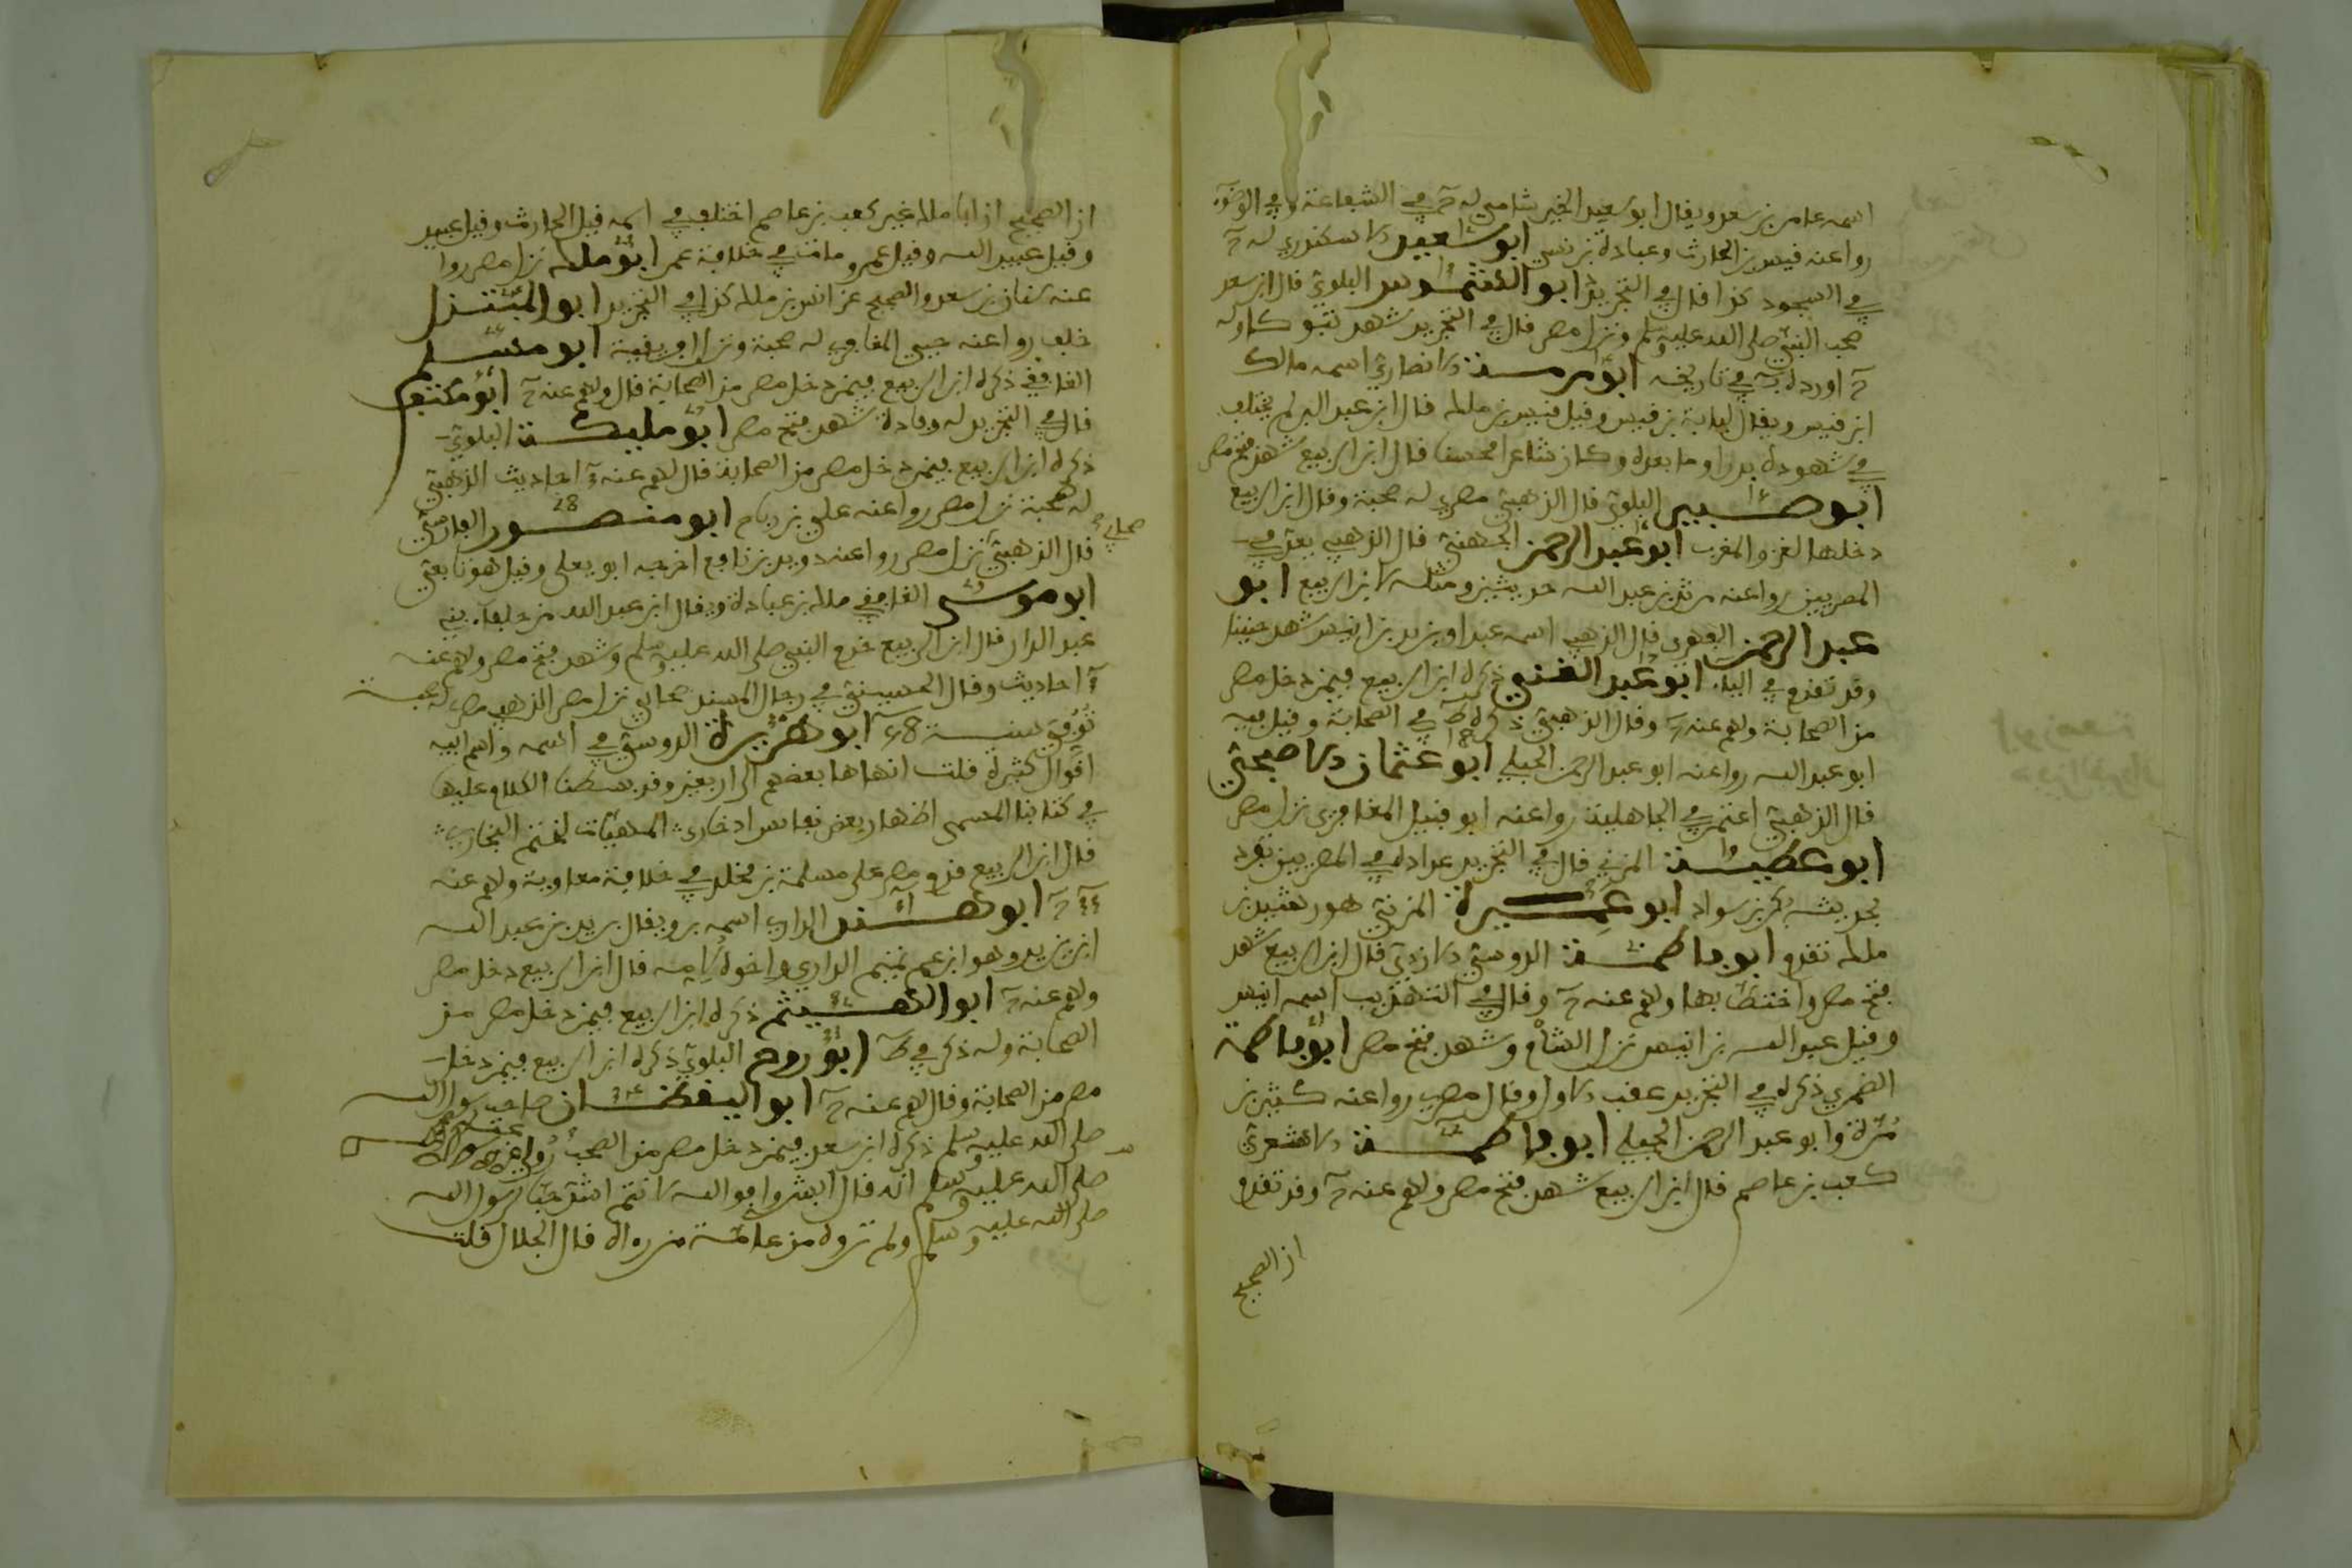 اسمه عامر بن سعد ويقال ابو سعيد الخير شامي له ح في الشفاعة وفي الوضوء
روا عنه قيس بن الحارث وعبادة بن نسي ابو سعيد الاسكندري له ح
في السجود كذا قال في التجريد ابو الشموس البلوي قال ابن سعد
صحب النبي صلى الله عليه وسلم ونزل مصر قال في التجريد شهد تبوك وله
ح اورده في تاريخه ابو صرمة الانصاري اسمه مالك
ابن قيس ويقال لبابة بن قيس وقيل قيس بن مالك قال ابن عبد البر لم يختلف
في شهوده بدرا وما بعده وكان شاعرا محسنا قال ابن الربيع شهد فتح مصر
ابو ضبيس البلوي قال الذهبي مصري له صحبة وقال ابن الربيع
دخلها لغزو المغرب ابو عبد الرحمن الجهني قال الذهبي يعد في
المصريين روا عنه مرثد بن عبد الله حديثين ومثله لابن الربيع ابو
عبد الرحمن الفهري قال الذهبي اسمه عبد او يزيد بن انيس شهد حنينا
وقد تقدم في الياء ابو عبد الغني ذكره ابن الربيع فيمن دخل مصر
من الصحابة ولهم عنه ح وقال الذهبي ذكره في الصحابة وقيل فيه
ابو عبد الله روا عنه ابو عبد الرحمن الحبلي ابو عثمان الاصبحي
قال الذهبي اعتمر في الجاهلية روا عنه ابو قبيل المعافري نزل مصر
ابو عطية المزني قال في التجريد عداده في المصريين تفرد
بحديثه بكر بن سواد ابو عميرة المزني هو رشيد بن
مالك تقدم ابو فاطمة الدوسي الازدي قال ابن الربيع شهد
فتح مصر واختط بها ولهم عنه ح وقال في التهذيب اسمه انيس
وقيل عبد الله بن انيس نزل الشام وشهد فتح مصر ابو فاطمة
الضمري ذكره في التجريد عقب الاول وقال مصري روا عنه كثير بن
مرة وابو عبد الرحمن الحبلي ابو فاطمة الاشعري
كعب بن عاصم قال ابن الربيع شهد فتح مصر ولهم عنه ح وقد تقدم
ان الصحيح
ان الصحيح ان ابا مالك غير كعب بن عاصم اختلف في اسمه قيل الحارث وقيل عبيد
وقيل عبيد الله وقيل عمرو مات في خلافة عمر ابو مالك نزل مصر روا
عنه سنان بن سعد والصحيح عن انس بن مالك كذا في التجريد ابو المبتذل
خلف روا عنه حيي المعافري له صحبة ونزل افريقية ابو مسلم
الغافقي ذكره ابن الربيع فيمن دخل مصر من الصحابة قال ولهم عنه ح ابو مكنف
قال في التجريد له وفادة شهد فتح مصر ابو مليكة البلوي
ذكره ابن الربيع فيمن دخل مصر من الصحابة قال لهم عنه احاديث الذهبي
له صحبة نزل مصر روا عنه علي بن رباح ابو منصور الفارسي
صحابي
قال الذهبي نزل مصر روا عنه دويد بن نافع اخرجه ابو يعلى وقيل هو تابعي
ابو موسى الغافقي مالك بن عبادة ويقال ابن عبد الله من حلفاء بني
عبد الدار قال ابن الربيع خدم النبي صلى الله عليه وسلم وشهد فتح مصر ولهم عنه
احاديث وقال الحسيني في رجال المسند صحابي نزل مصر الذهبي مصري له صحبة
توفي سنة ابو هريرة الدوسي في اسمه واسم ابيه
اقوال كثيرة قلت انهاها بعضهم الى اربعين وقد بسطنا الكلام عليها
في كتابنا المسمى اظهار بعض نفائس ادخاري المهيات لختم البخاري
قال ابن الربيع قدم مصر على مسلمة بن مخلد في خلافة معاوية ولهم عنه
ح ابو هند الداري اسمه بر ويقال برير بن عبد الله
ابن برير وهو ابن عم تميم الداري واخوه لامه قال ابن الربيع دخل مصر
ولهم عنه ح ابو الهيثم ذكره ابن الربيع فيمن دخل مصر من
الصحابة وله ذكر في ابو روح البلوي ذكره ابن الربيع فيمن دخل
مصر من الصحابة وقال لهم عنه ح ابو اليقظان صاحب رسول الله
صلى الله عليه وسلم ذكره ابن سعد فيمن دخل مصر من الصحب
صلى الله عليه وسلم انه قال ابشروا فو الله لانتم اشد حبا لرسول الله
صلى الله عليه وسلم ولم تروه من عامة من رءاه قال الجلال قلت